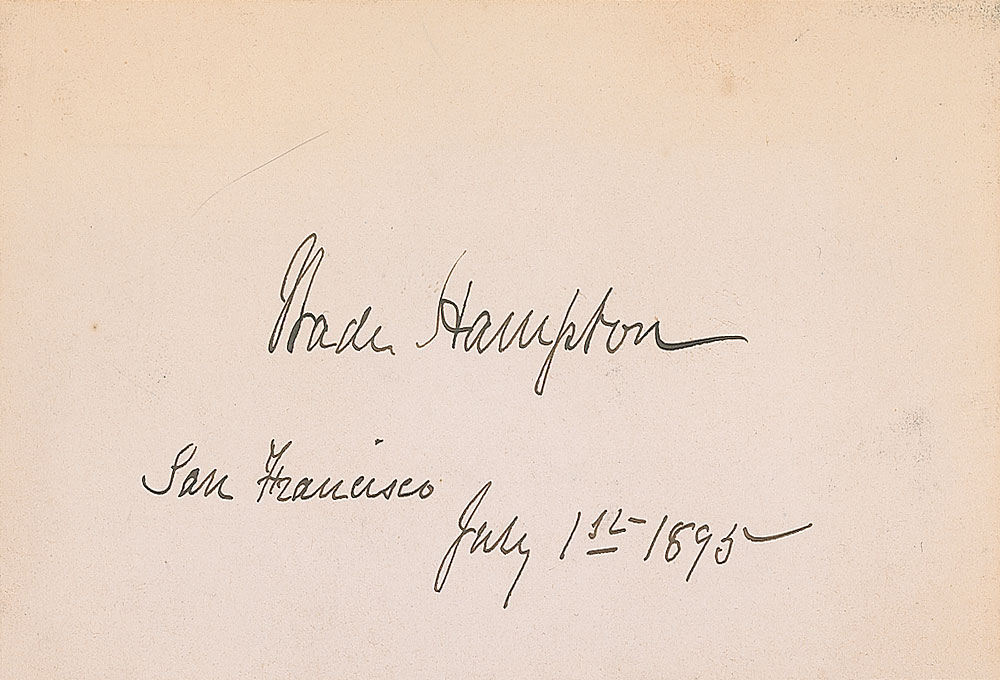 Wade Hampton
San Francisco
July 1st 1895